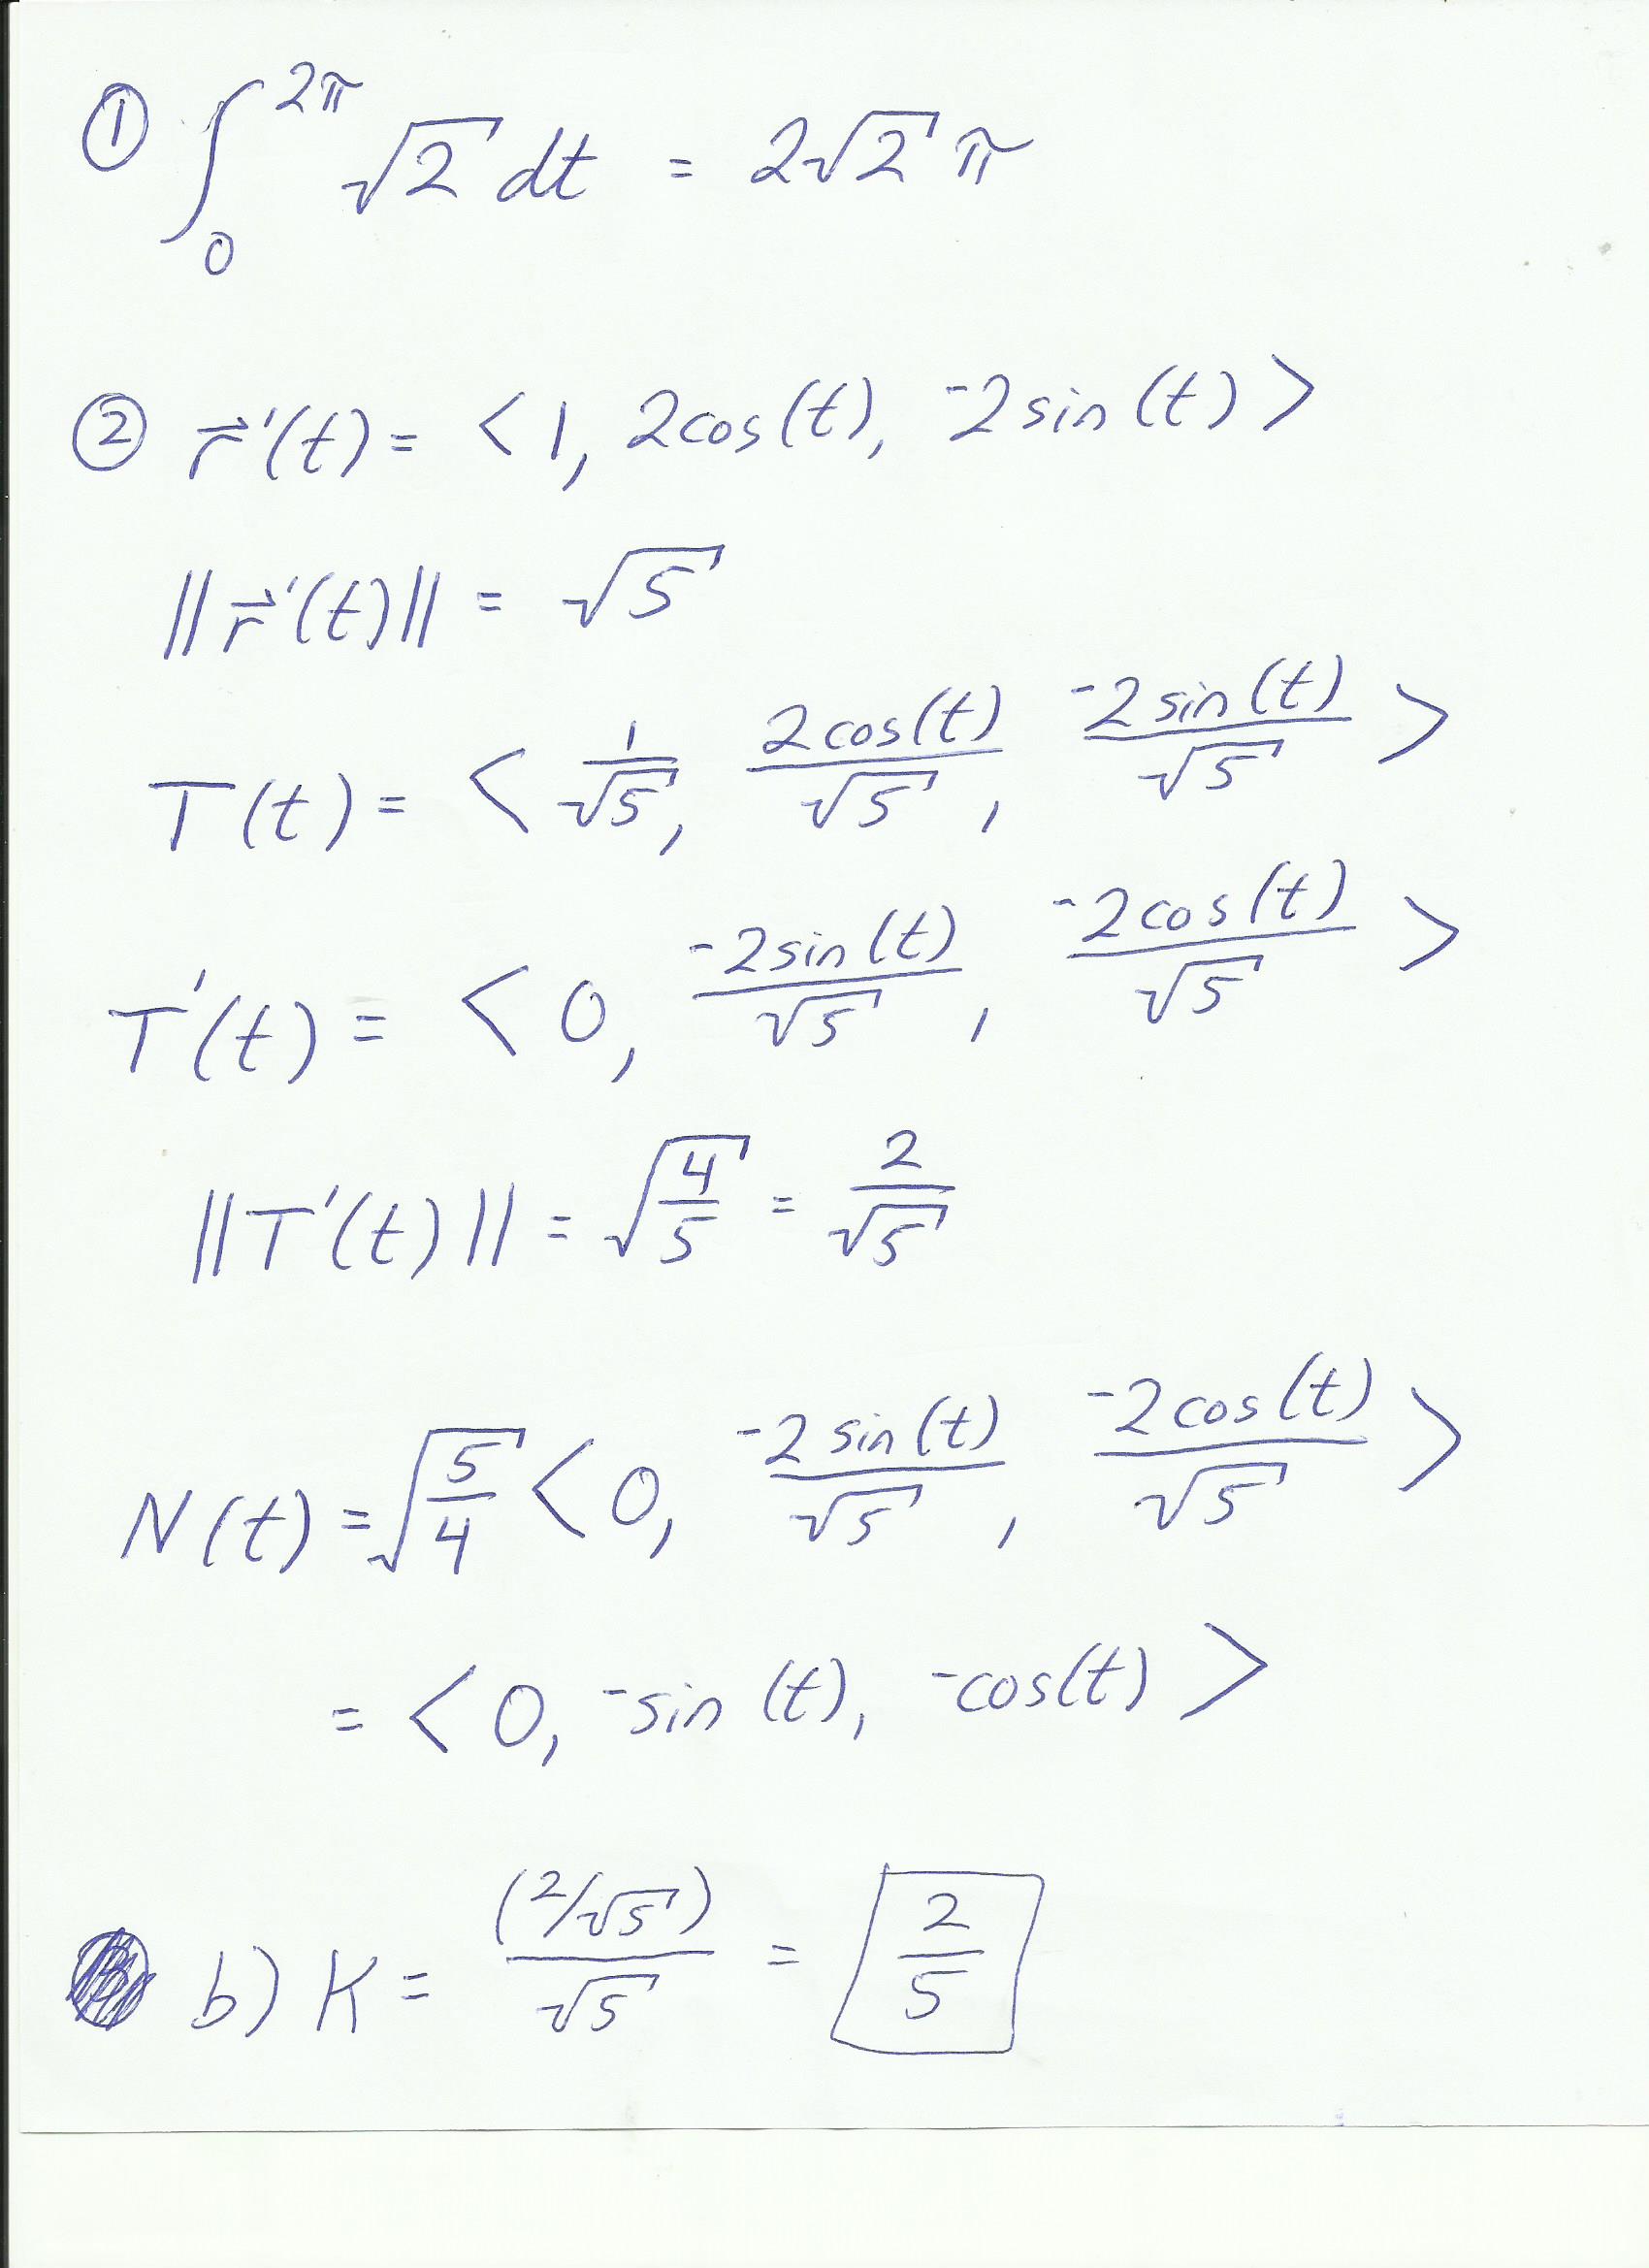 ① ∫₀^{2π} √2 dt = 2√2 π
② r⃗'(t) = <1, 2cos(t), -2sin(t)>
||r⃗'(t)|| = √5
T(t) = <1/√5, 2cos(t)/√5, -2sin(t)/√5>
T'(t) = <0, -2sin(t)/√5, -2cos(t)/√5>
||T'(t)|| = √(4/5) = 2/√5
N(t) = √(5/4) <0, -2sin(t)/√5, -2cos(t)/√5>
= <0, -sin(t), -cos(t)>
b) K = (2/√5)/√5 = 2/5